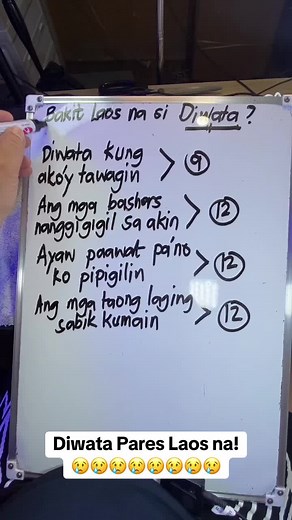 Bakit Laos na si Diwata?
Diwata kung > 9
ako'y tawagin
Ang mga bashers > 12
nanggigigil sa akin
Ayaw paawat pa'no > 12
ko pipigilin
Ang mga taong laging > 12
sabik kumain
Diwata Pares Laos na!
😢😢😢😢😢😢😢😢